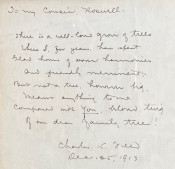 To my Cousin Roswell.
There is a well-known grove of trees
Where I, for years, have spent
Glad hours of warm harmonies
And friendly merriment.
But not a tree, however big,
Means anything to me
Compared with You, blown twig
Of our dear family tree!
Charles K. Field
Dec. 25, 1913